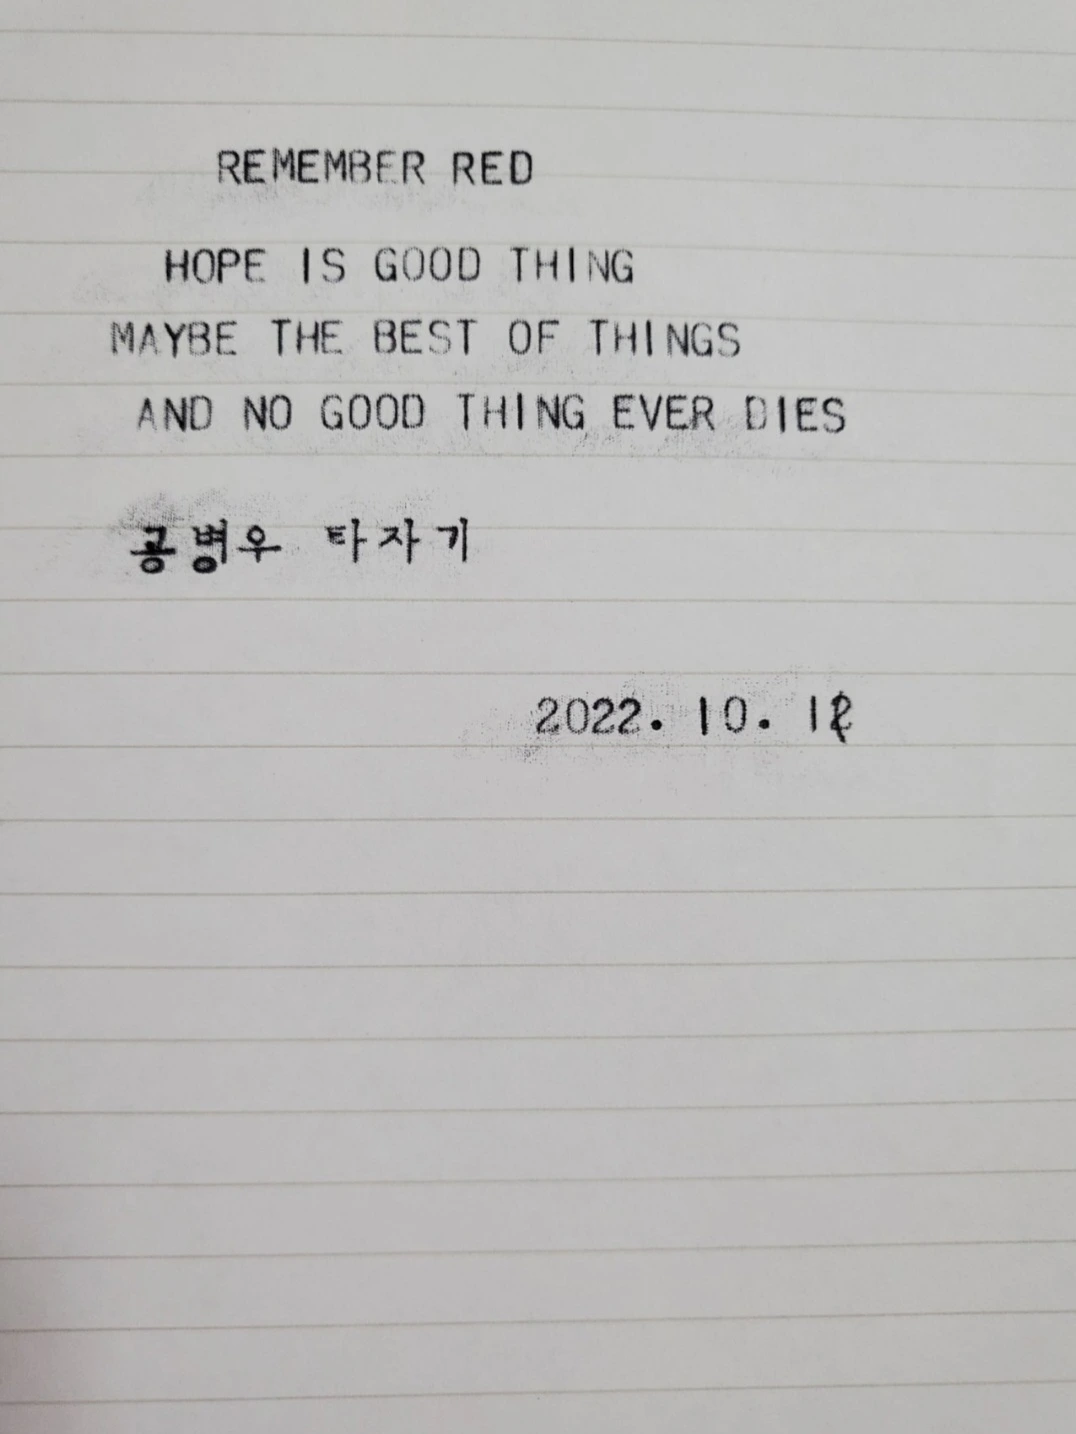 REMEMBER RED
HOPE IS GOOD THING
MAYBE THE BEST OF THINGS
AND NO GOOD THING EVER DIES
공병우 타자기
2022. 10.